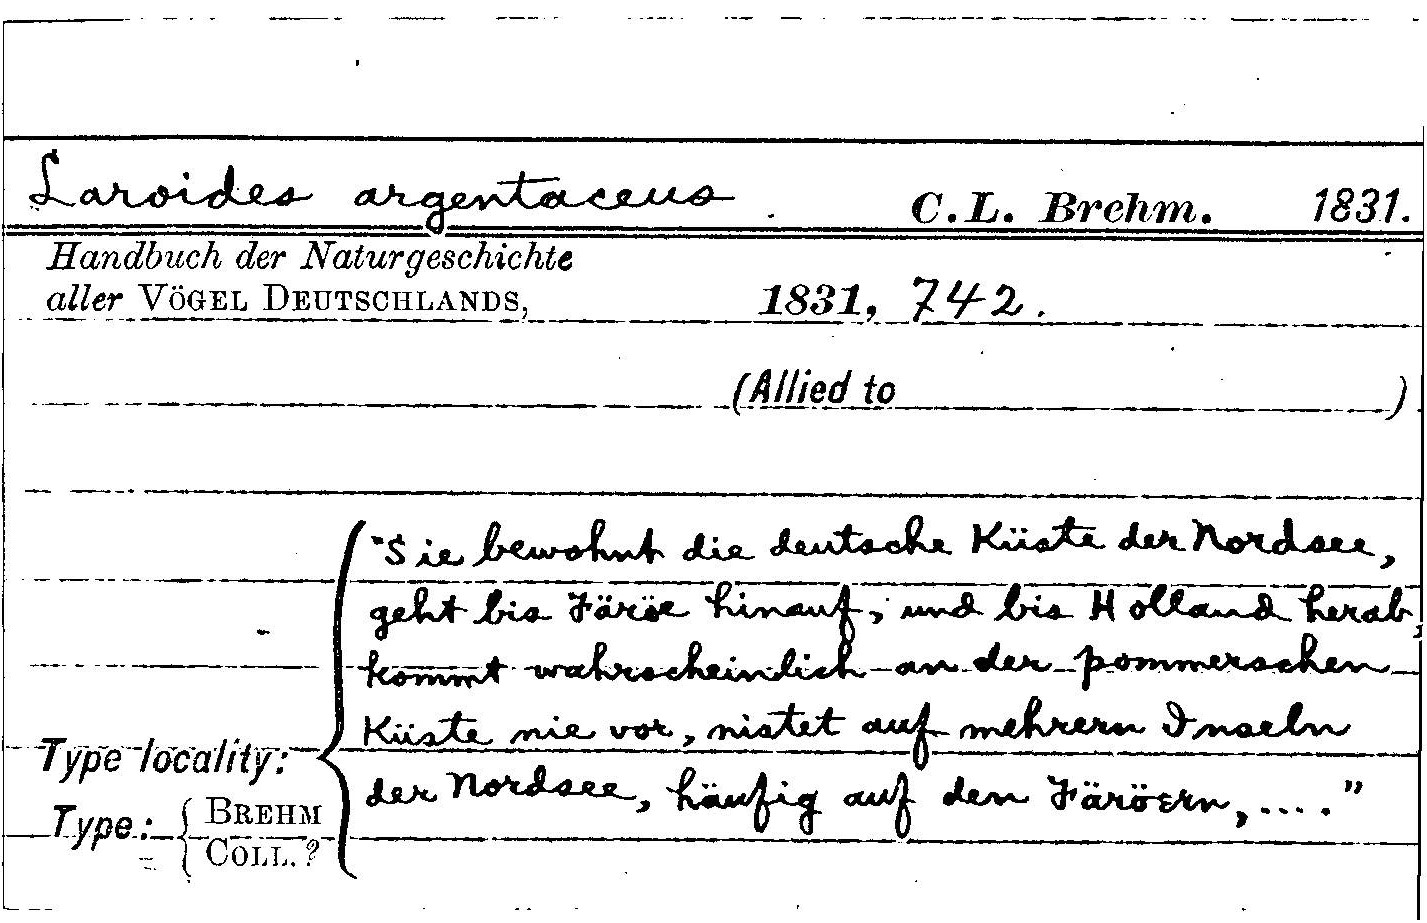 Laroides argentaceus C.L. Brehm. 1831.
Handbuch der Naturgeschichte
aller VÖGEL DEUTSCHLANDS, 1831, 742.
(Allied to )
"Sie bewohnt die deutsche Küste der Nordsee,
geht bis Färöe hinauf, und bis Holland herab,
kommt wahrscheinlich an der pommerschen
Küste nie vor, nistet auf mehrern Inseln
der Nordsee, häufig auf den Färöern, ...."
Type locality:
Type: BREHM
COLL.?